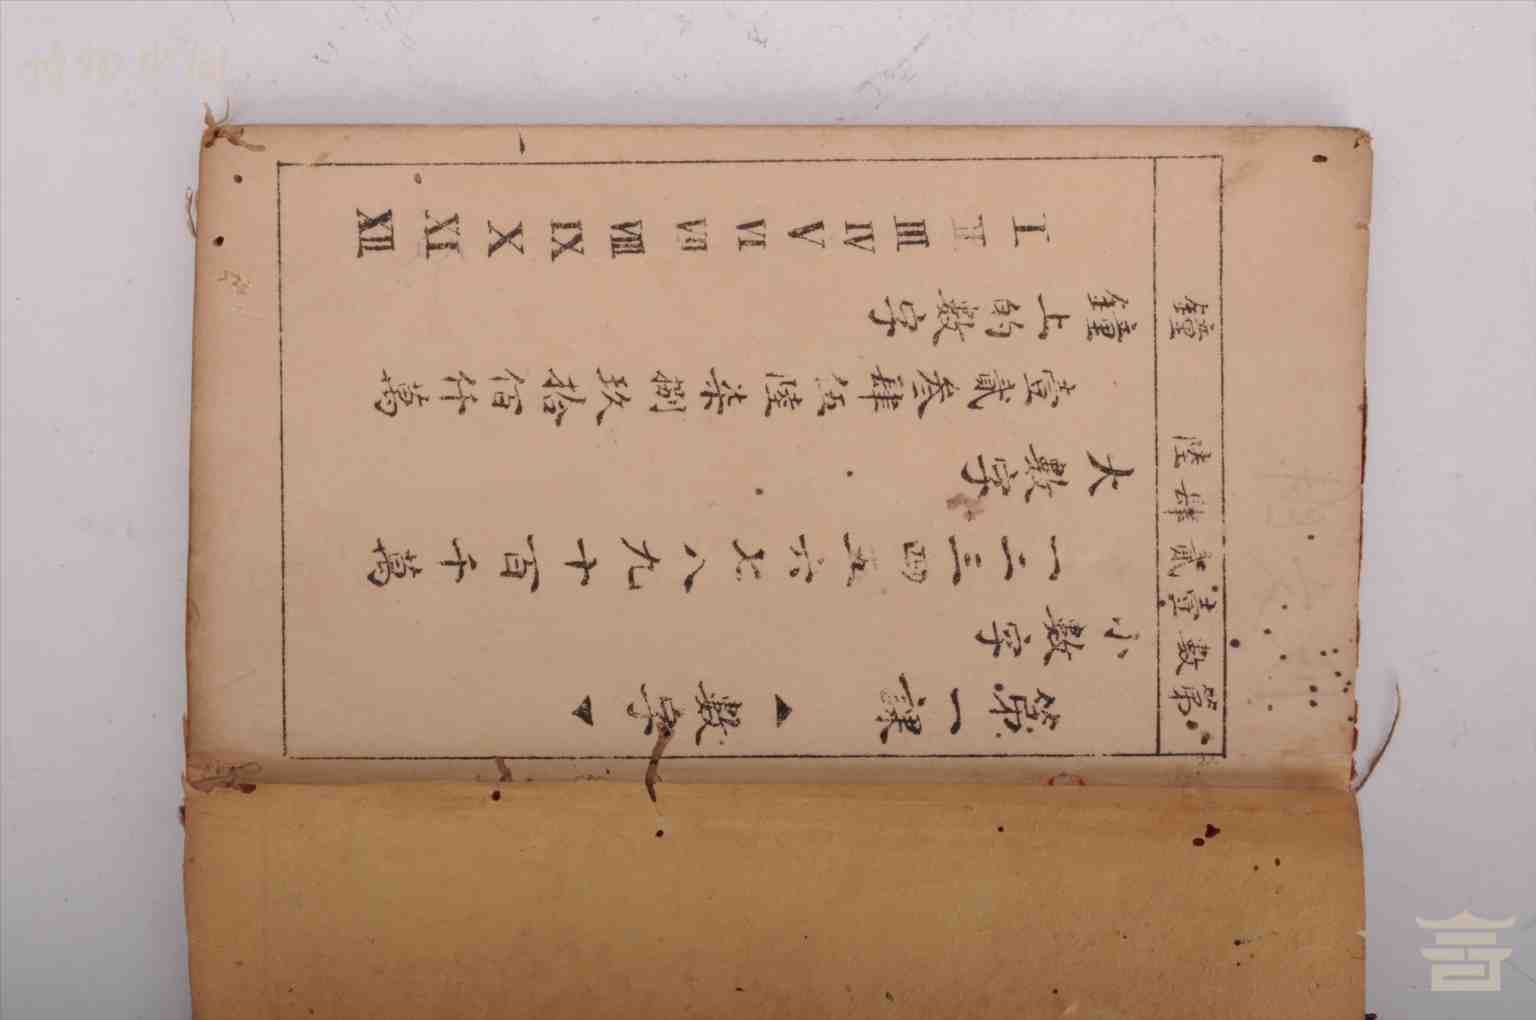 第數壹貳肆陸鐘
第一課 ▲數字▼
小數字
一二三四五六七八九十百千萬
大數字
壹貳叁肆伍陸柒捌玖拾佰仟萬
鐘上的數字
I II III IV V VI VII VIII IX X XI XII